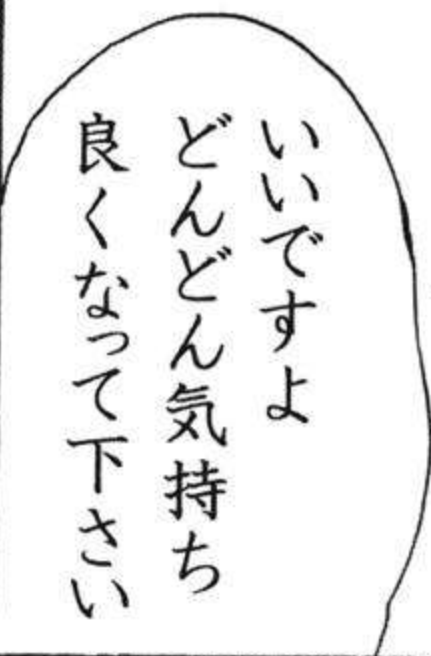 いいですよ
どんどん気持ち
良くなって下さい